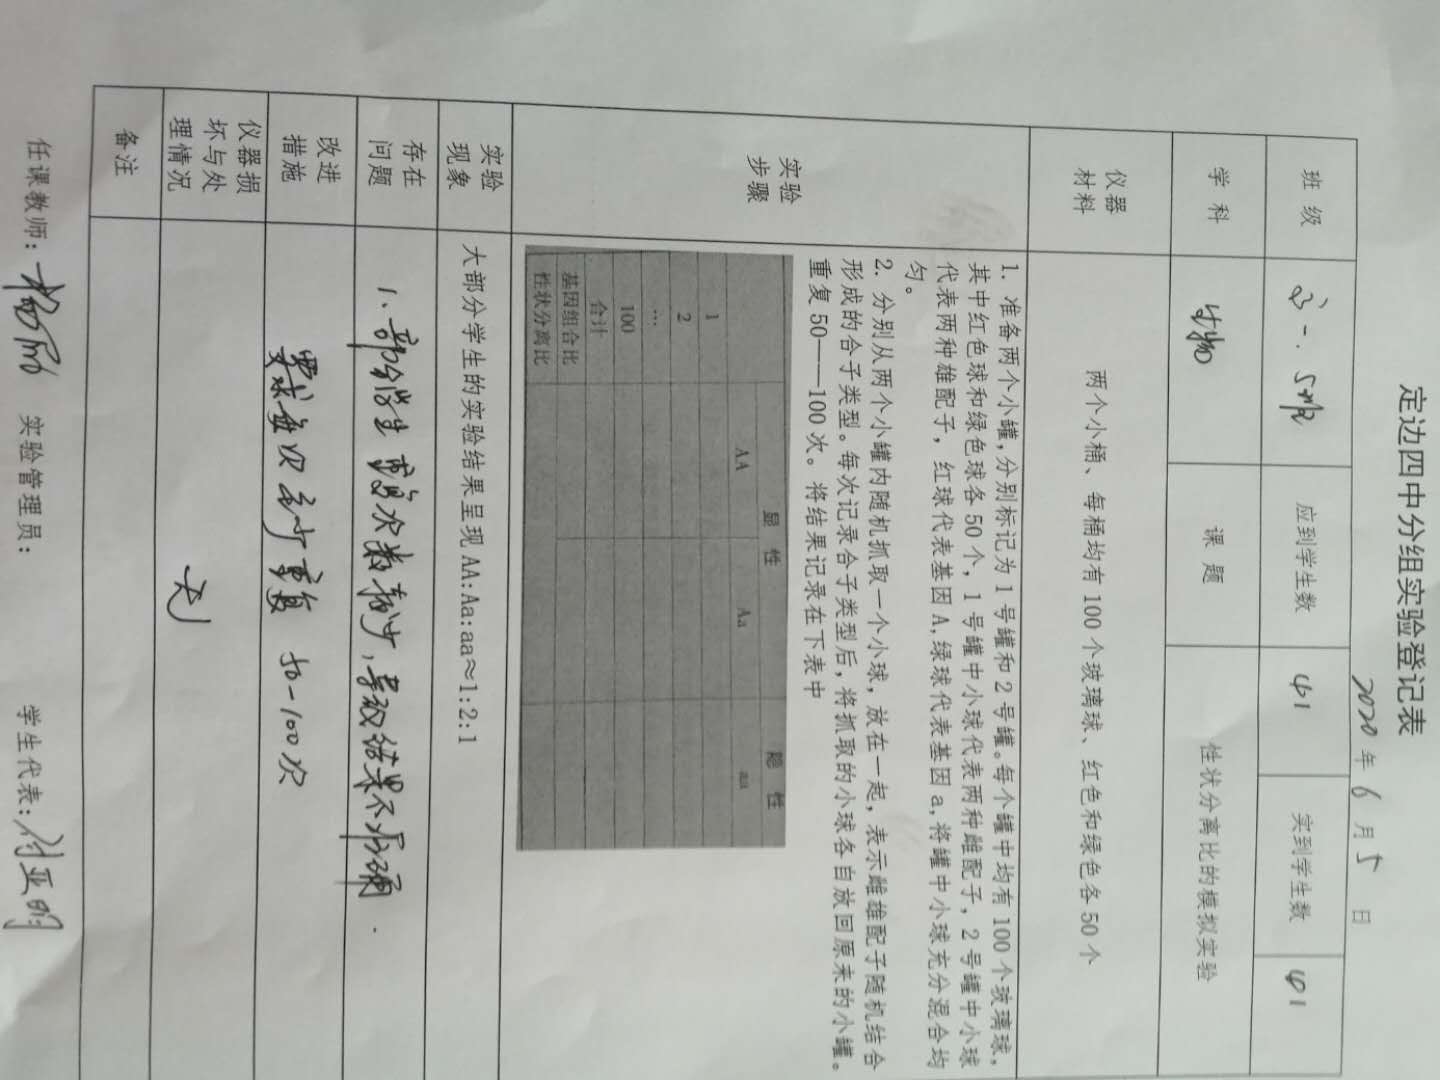 定边四中分组实验登记表
2020年6月5日
班级 高一.5班 应到学生数 41 实到学生数 41
学科 生物 课题 性状分离比的模拟实验
仪器材料 两个小桶、每桶均有100个玻璃球、红色和绿色各50个
实验步骤
1. 准备两个小罐,分别标记为1号罐和2号罐。每个罐中均有100个玻璃球,
其中红色球和绿色球各50个,1号罐中小球代表两种雌配子,2号罐中小球
代表两种雄配子,红球代表基因A,绿球代表基因a,将罐中小球充分混合均
匀。
2. 分别从两个小罐内随机抓取一个小球,放在一起,表示雌雄配子随机结合
形成的合子类型。每次记录合子类型后,将抓取的小球各自放回原来的小罐。
重复50——100次。将结果记录在下表中
显 性 隐 性
AA Aa aa
1
2
…
100
合计
基因组合比
性状分离比
实验现象 大部分学生的实验结果呈现AA:Aa:aa≈1:2:1
存在问题 1.部分学生重复次数较少,导致结果不准确.
改进措施 要求每次至少重复50-100次
仪器损坏与处理情况 无
备注
任课教师: 实验管理员: 学生代表:付亚明